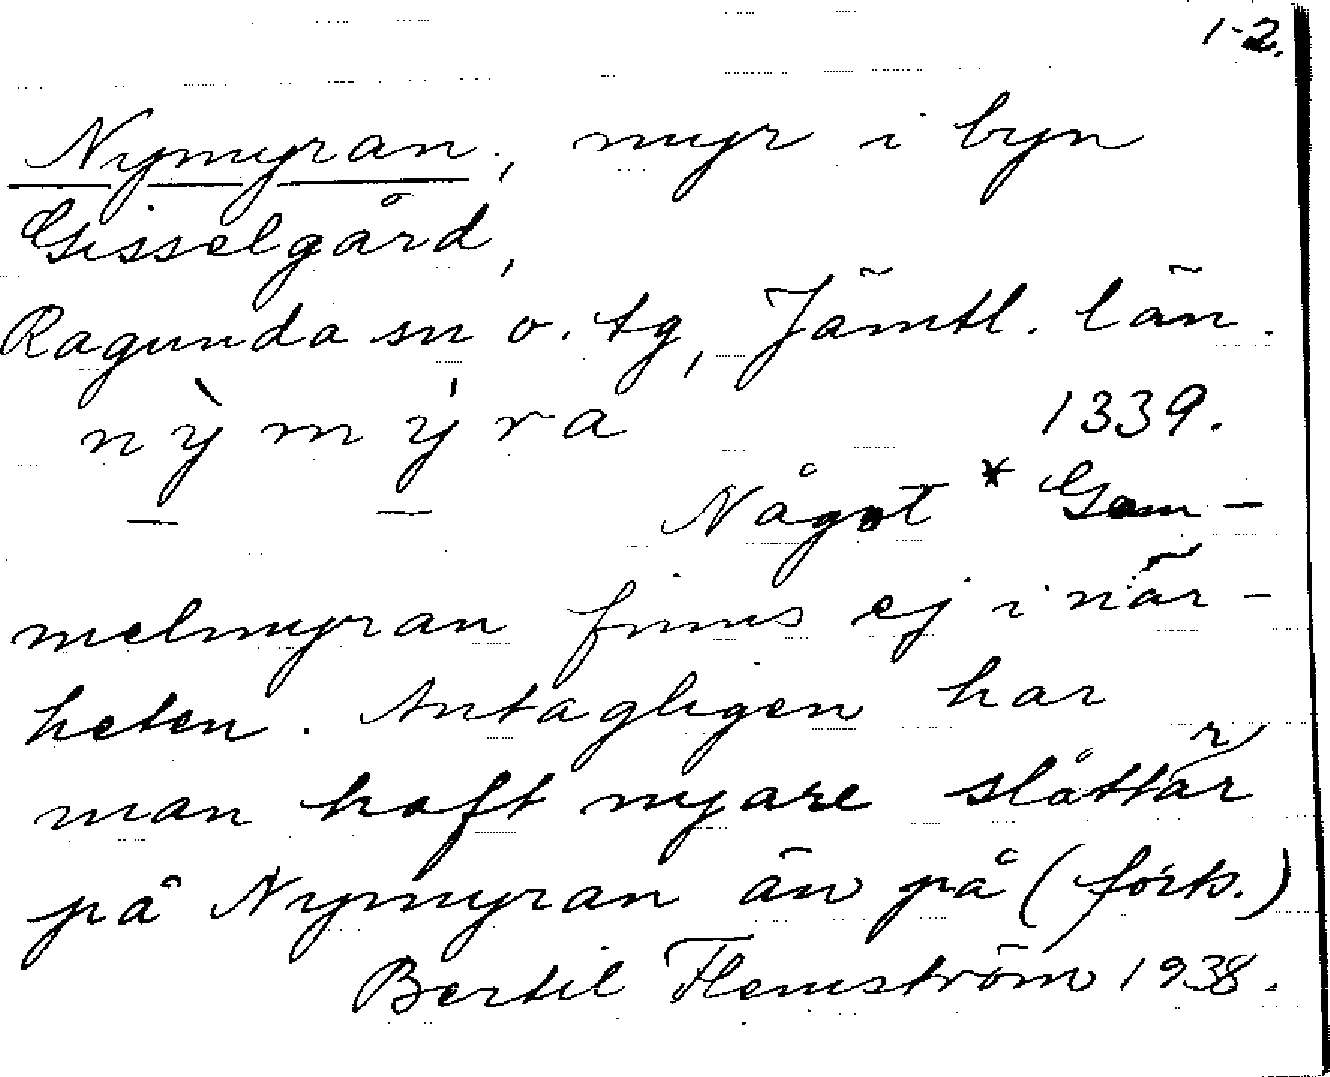 1-2.
Nymyran, myr i byn
Gisselgård,
Ragunda sn o. tg, Jämtl. län.
nỳmýra 1339.
Något * Gam-
melmyran finns ej i när-
heten. Antagligen har
man haft nyare slåttär
på Nymyran än på (forts.)
Bertil Flemström 1938.